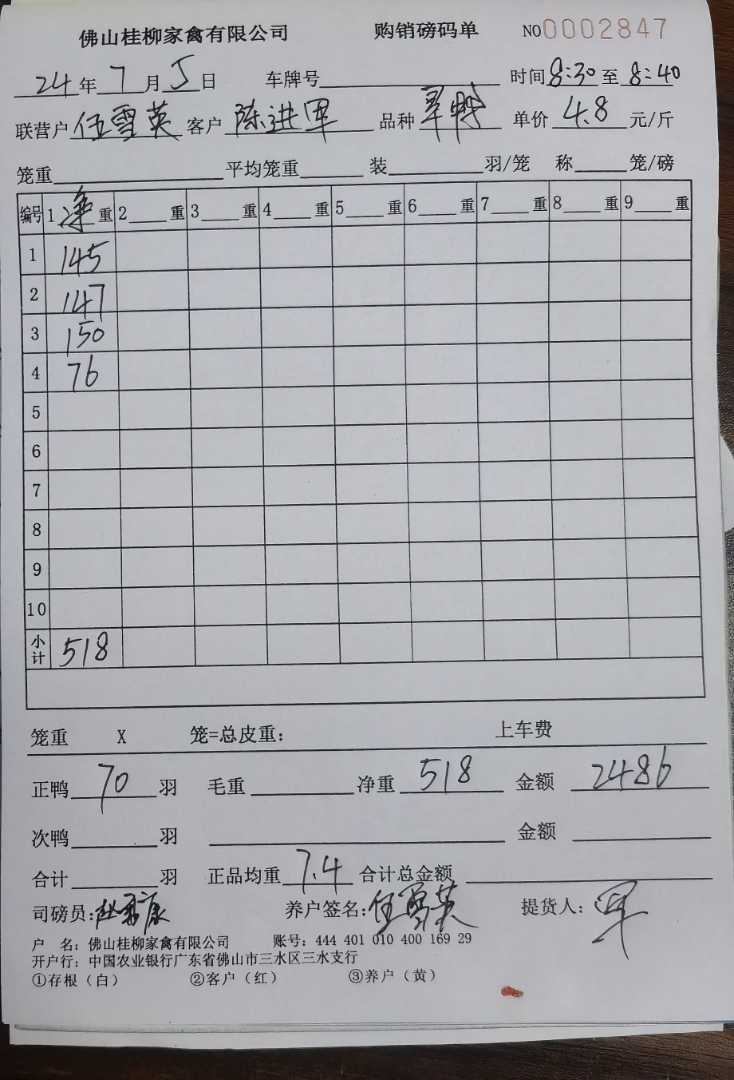 佛山桂柳家禽有限公司 购销磅码单 NO0002847
24年7月5日 车牌号 时间8:30至8:40
联营户 伍雪英 客户 陈进军 品种 单价 4.8 元/斤
笼重 平均笼重 装 羽/笼 称 笼/磅
编号 1 净 重 2 重 3 重 4 重 5 重 6 重 7 重 8 重 9 重
1 145
2 147
3 150
4 76
5
6
7
8
9
10
小计 518
笼重 X 笼=总皮重: 上车费
正鸭 70 羽 毛重 净重 518 金额 2486
次鸭 羽 金额
合计 羽 正品均重 7.4 合计总金额
司磅员: 养户签名: 伍雪英 提货人: 军
户 名: 佛山桂柳家禽有限公司 账号: 444 401 010 400 169 29
开户行: 中国农业银行广东省佛山市三水区三水支行
①存根(白) ②客户(红) ③养户(黄)